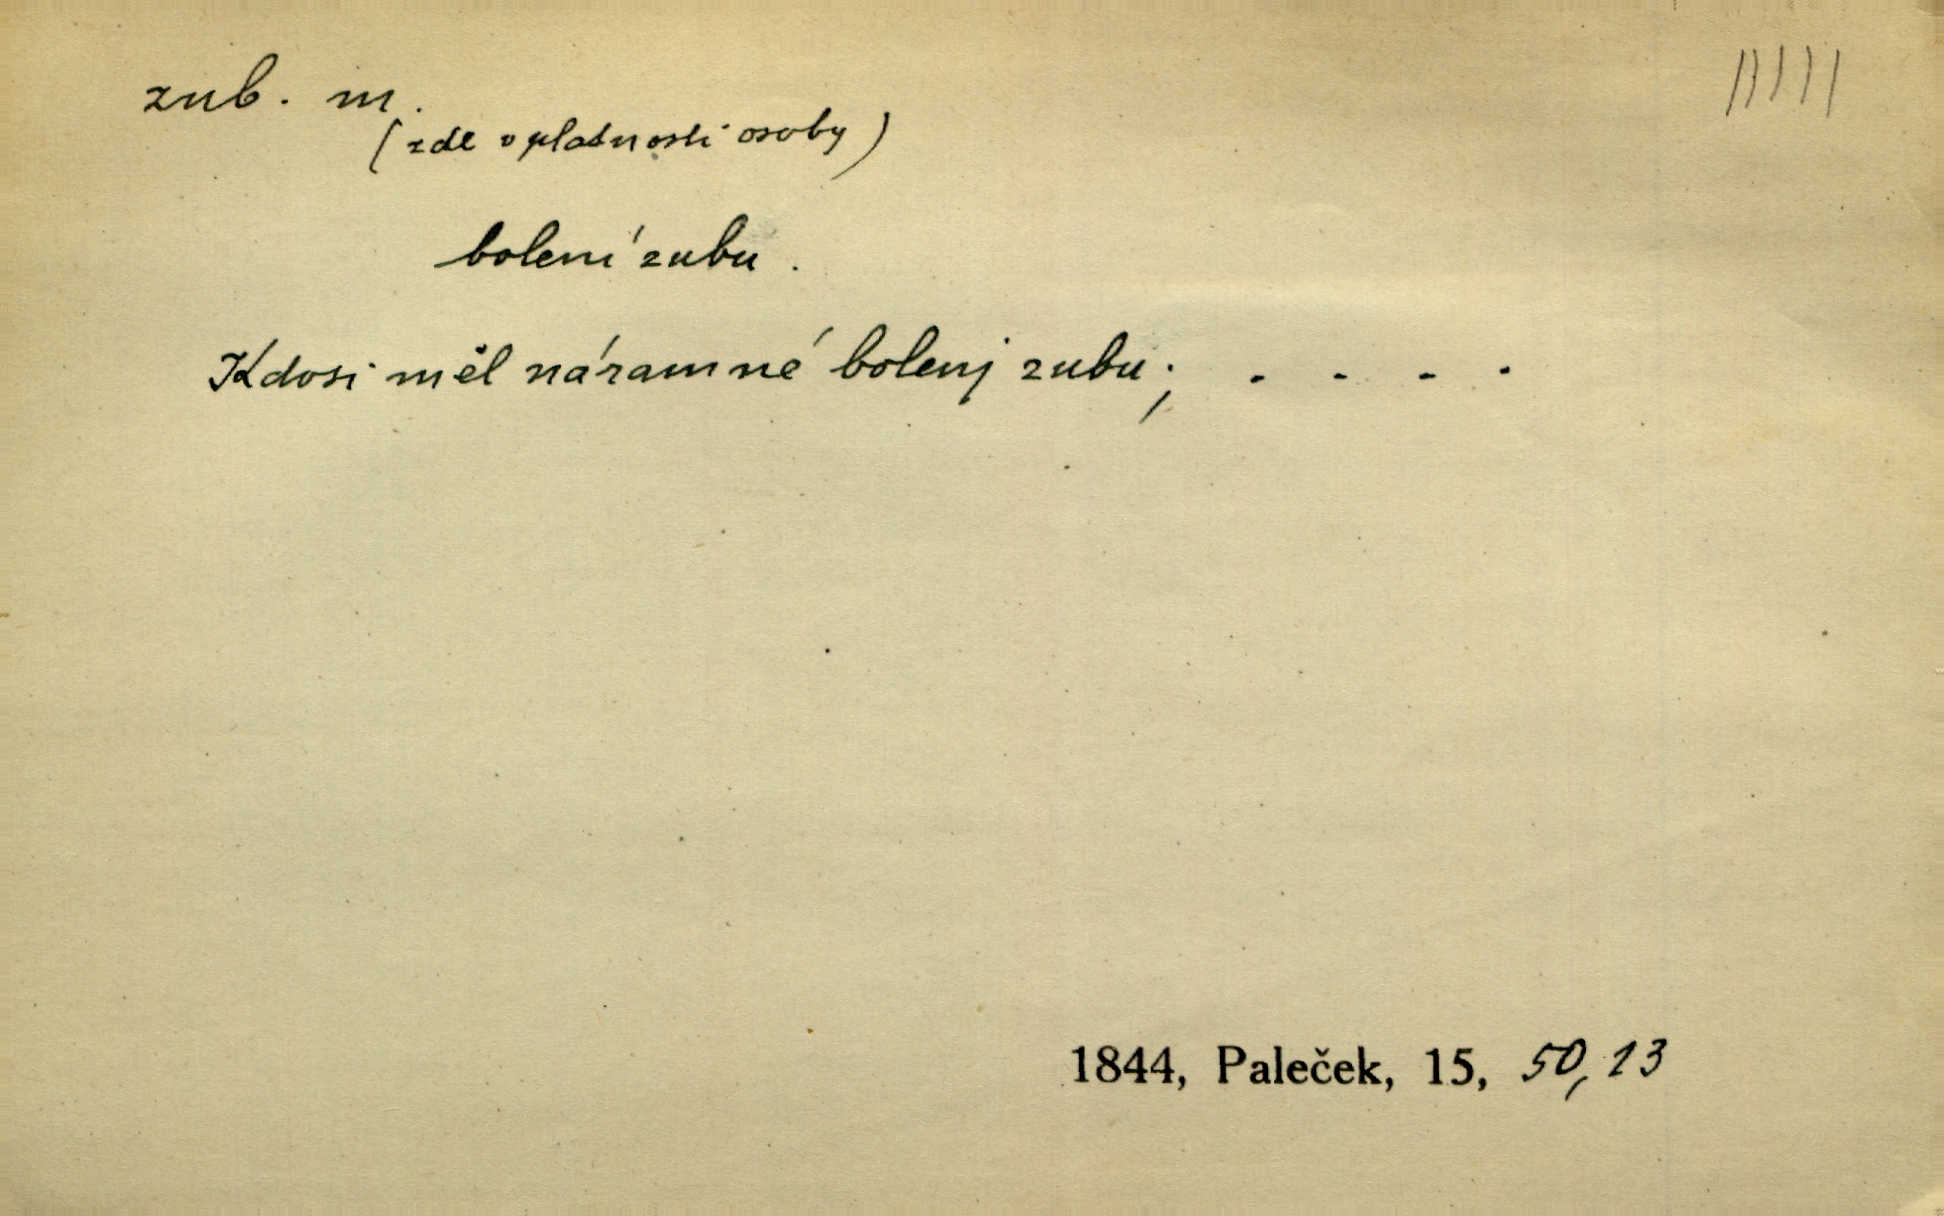 zub. m.
(zde v platnosti osoby)
bolení zubu.
Kdosi měl náramné bolenj zubu; . . . .
1844, Paleček, 15, 50, 13